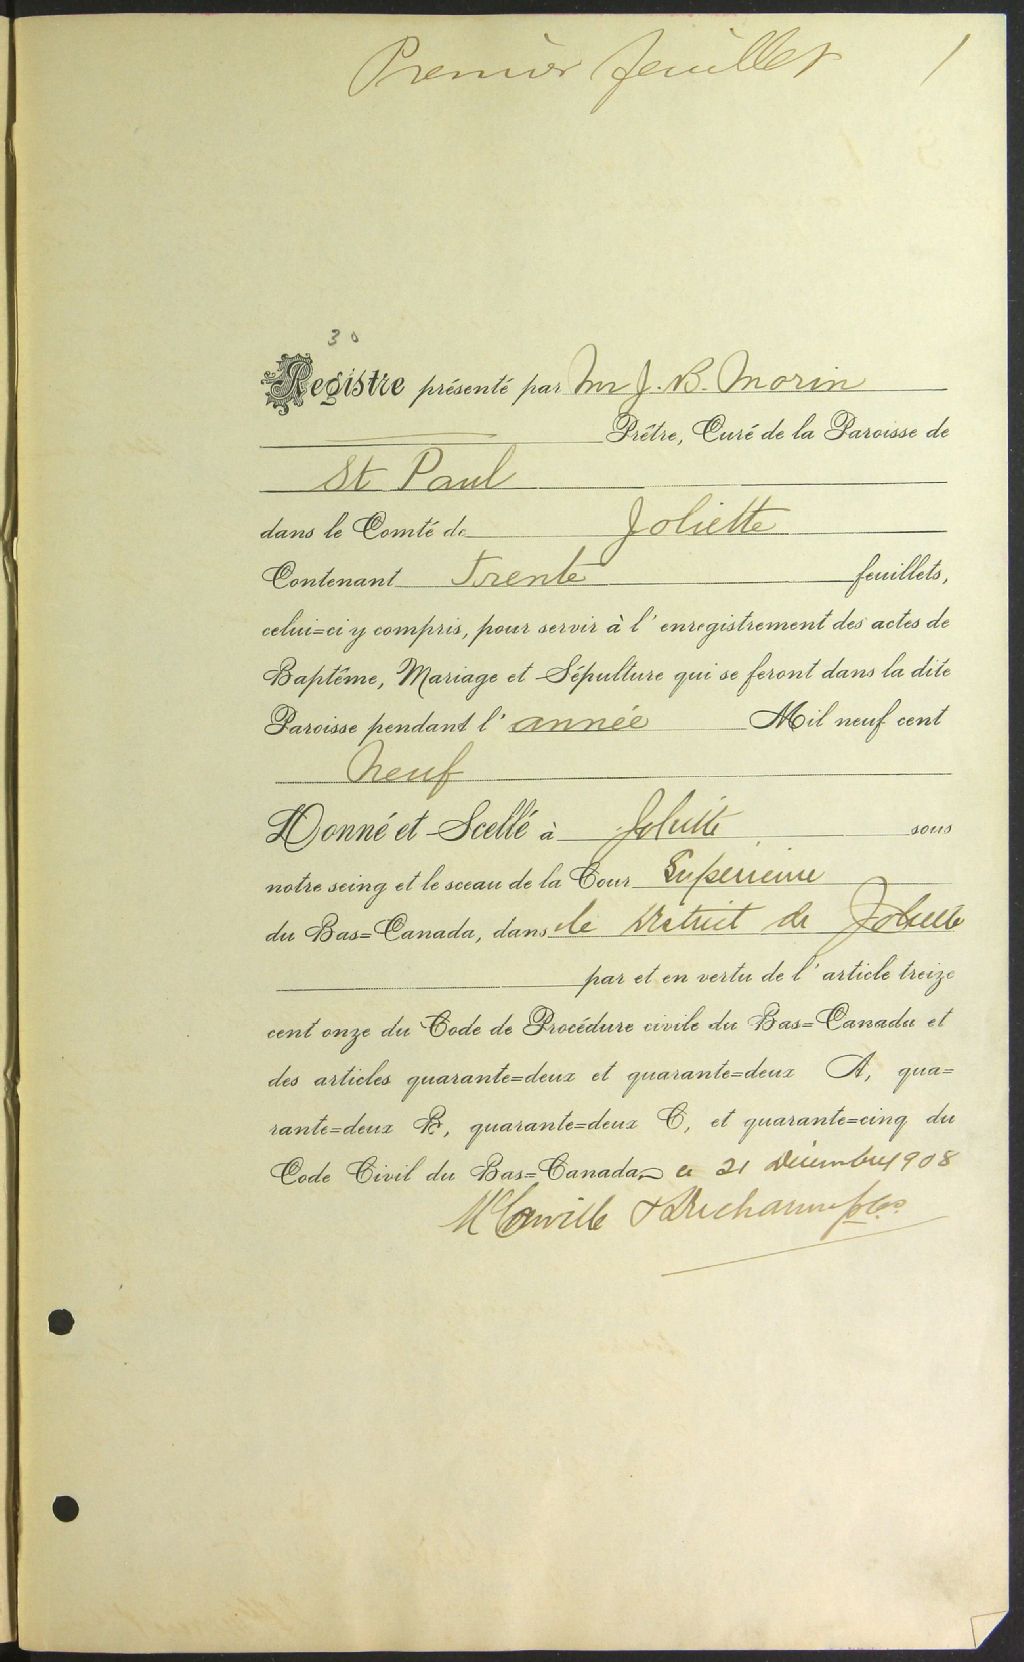 Premier feuillet 1
30
Registre présenté par Mr J. B. Morin
Prêtre, Curé de la Paroisse de
St Paul
dans le Comté de Joliette
Contenant Trente feuillets,
celui=ci y compris, pour servir à l'enregistrement des actes de
Baptême, Mariage et Sépulture qui se feront dans la dite
Paroisse pendant l'année Mil neuf cent
neuf
Donné et Scellé à Joliette sous
notre seing et le sceau de la Cour Supérieure
du Bas=Canada, dans le District de Joliette
par et en vertu de l'article treize
cent onze du Code de Procédure civile du Bas=Canada et
des articles quarante=deux et quarante=deux A, qua=
rante=deux B, quarante=deux C, et quarante=cinq du
Code Civil du Bas=Canada, ce 21 Décembre 1908
McConville & Ducharme